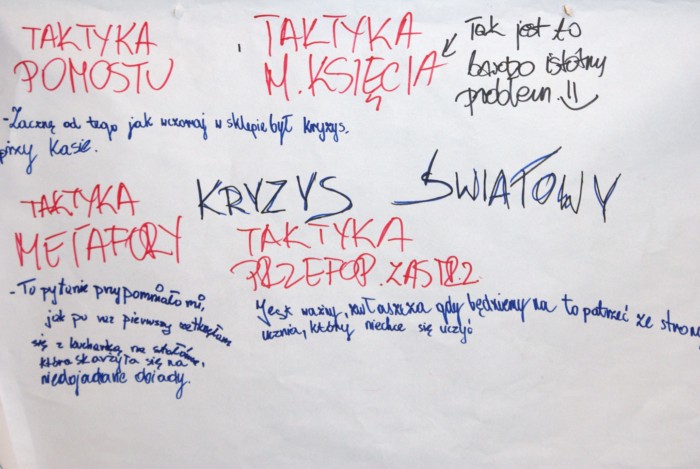 TAKTYKA
POMOSTU
- Zacznę od tego jak wczoraj w sklepie był kryzys.
przy kasie.
TAKTYKA
M. KSIĘCIA
Tak jest to
bardzo istotny
problem!!
KRYZYS ŚWIATOWY
TAKTYKA
METAFORY
- To pytanie przypomniało mi,
jak po raz pierwszy zetknęłam
się z kucharką na stołówce,
która skarżyła się na
niedojadane obiady.
TAKTYKA
PRZEFOP. ZASTRZ.
Jest ważny, zwłaszcza gdy będziemy na to patrzeć ze strony
ucznia, który niechce się uczyć